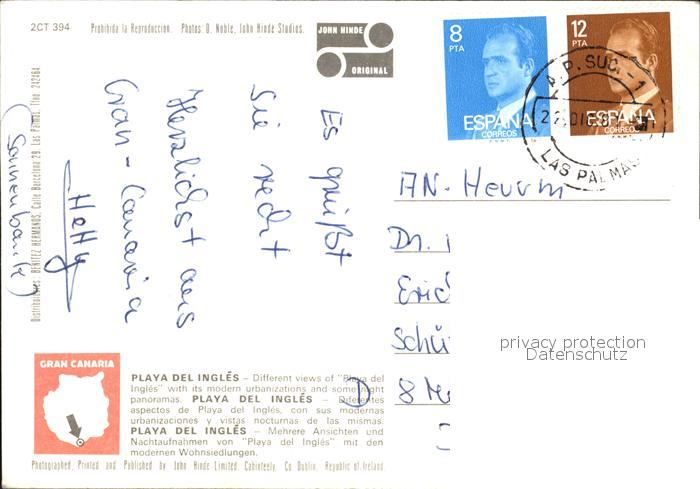 2CT 394 Prohibida la Reproduccion. Photos: D. Noble, John Hinde Studios.
JOHN HINDE
ORIGINAL
8
PTA
ESPAÑA
CORREOS
12
PTA
ESPAÑA
CORREOS
P. SUC. - 1
LAS PALMAS
Distribuidores: BENITEZ HERMANOS, Calle Barcelona 29, Las Palmas. Tfno. 242464.
Es grüßt
Sie recht
Herzlichst aus
Gran-Canaria
Hetty
(Sonnenbank)
AN. Herrn
Dr.
Eric
Schü
D 8
privacy protection
Datenschutz
GRAN CANARIA
PLAYA DEL INGLÉS – Different views of "Playa del
Inglés" with its modern urbanizations and some night
panoramas. PLAYA DEL INGLÉS – Diferentes
aspectos de Playa del Inglés, con sus modernas
urbanizaciones y vistas nocturnas de las mismas.
PLAYA DEL INGLÉS – Mehrere Ansichten und
Nachtaufnahmen von "Playa del Inglés" mit den
modernen Wohnsiedlungen.
Photographed, Printed and Published by John Hinde Limited, Cabinteely, Co. Dublin, Republic of Ireland.